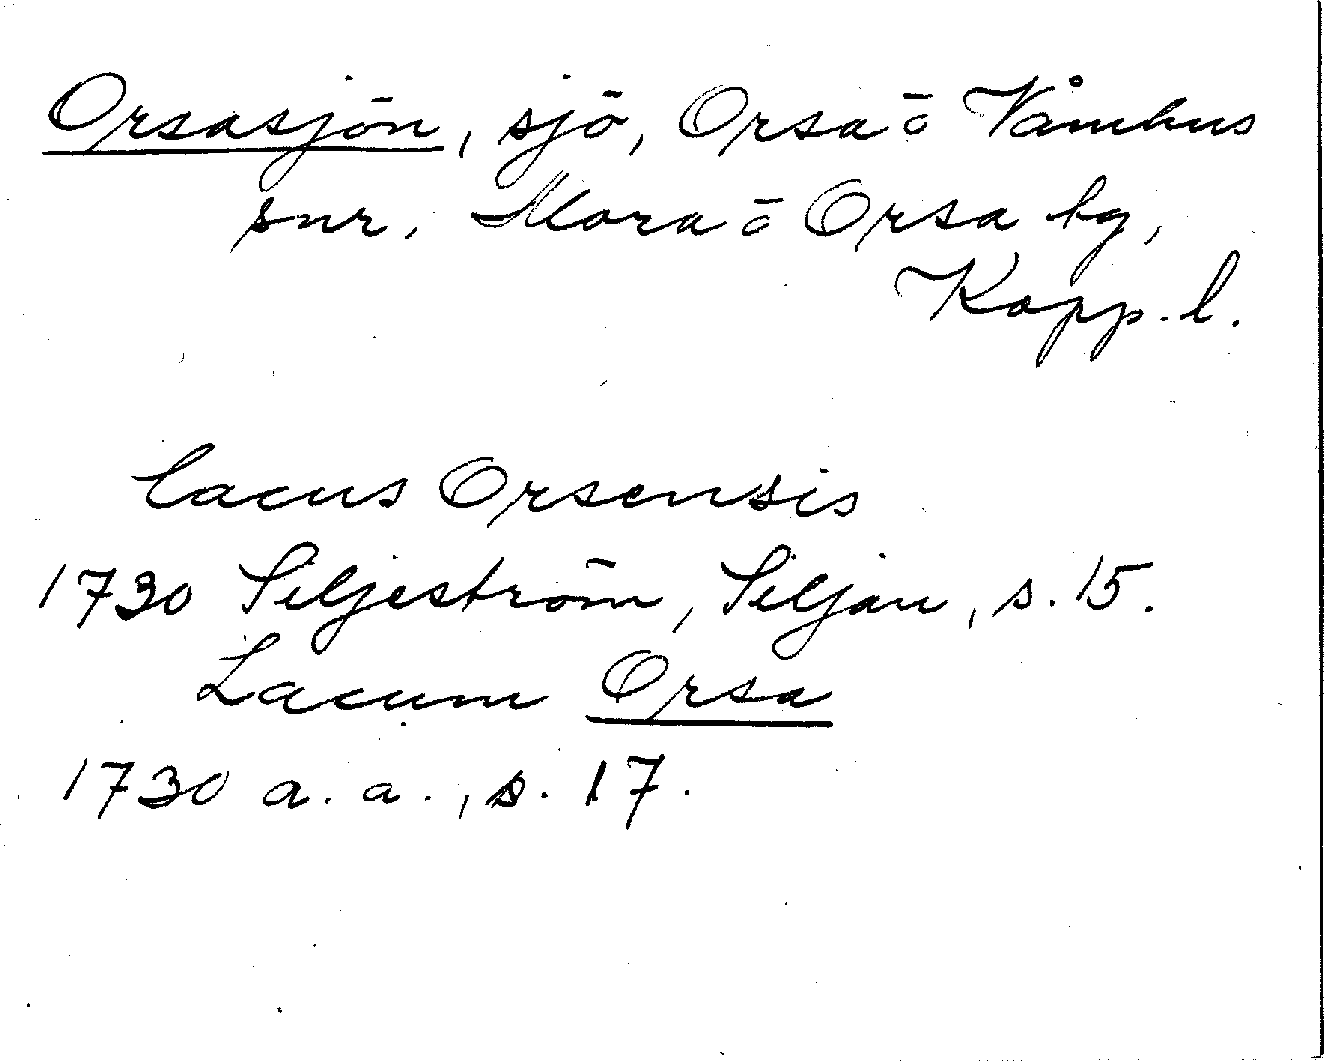 Orsasjön, sjö, Orsa o Våmhus
snr, Mora o Orsa tg,
Kopp. l.
lacus Orsensis
1730 Siljeström, Siljan, s. 15.
Lacum Orsa
1730 a. a., s. 17.